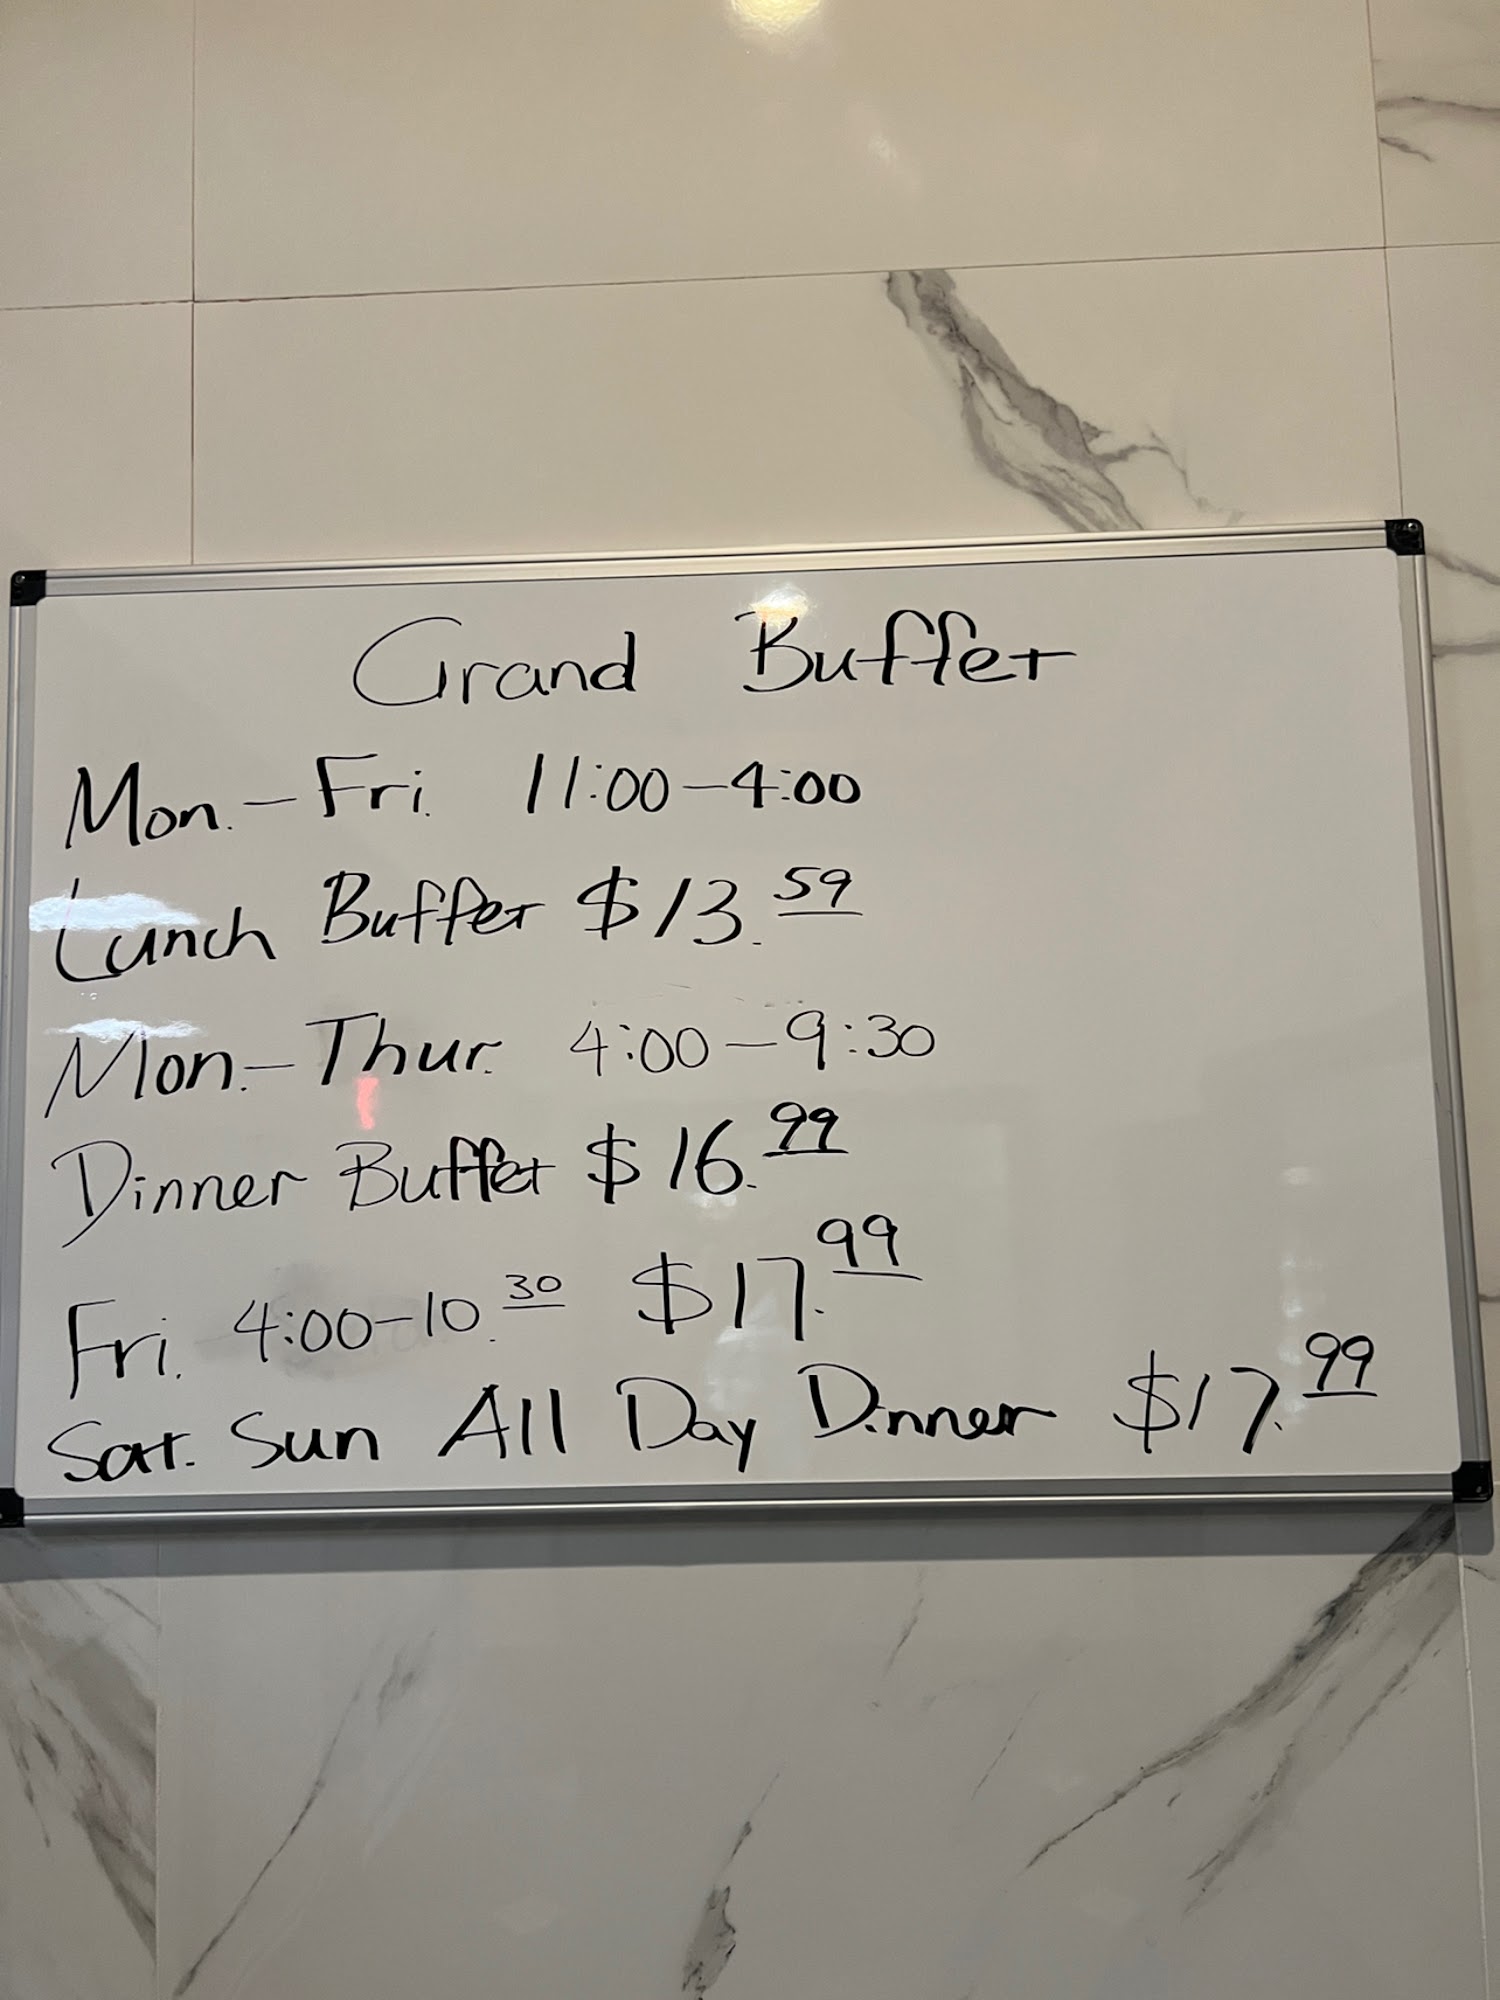 Grand Buffet
Mon.-Fri. 11:00-4:00
Lunch Buffet $13.59
Mon.-Thur. 4:00-9:30
Dinner Buffet $16.99
Fri. 4:00-10.30 $17.99
Sat. Sun All Day Dinner $17.99